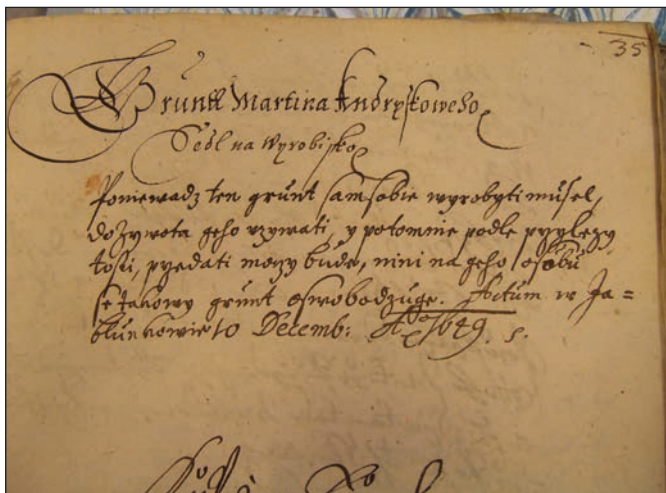 35
Gruntt Martina Andryskoweho
Sedl na Wyrobisko
Poniewadz ten grunt sam sobie wyrobyti müsel,
do zywota geho vzywati, y potomnie podle przylezy
tosti, przedati moczy bude, nini na geho osobü
se takowy grunt oswobodzuge. Actum w Ja=
blünkowie 10 Decemb: Ao 1649.